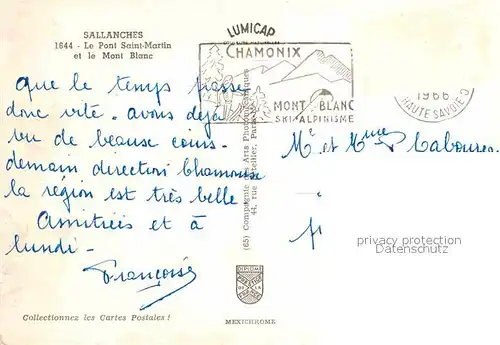 SALLANCHES
1844 - Le Pont Saint-Martin
et le Mont Blanc
LUMICAP
CHAMONIX
MONT BLANC
SKI-ALPINISME
1966
HAUTE SAVOIE
que le temps passe
donc vite - avons déjà
vu de beaux coins -
demain direction Chamonix
la région est très belle
Amitiés et à
lundi -
Françoise
Mr et Mme
(65) Compagnie des Arts Photomécaniques
44, rue
privacy protection
www.delcampe.net
Collectionnez les Cartes Postales !
MEXICHROME